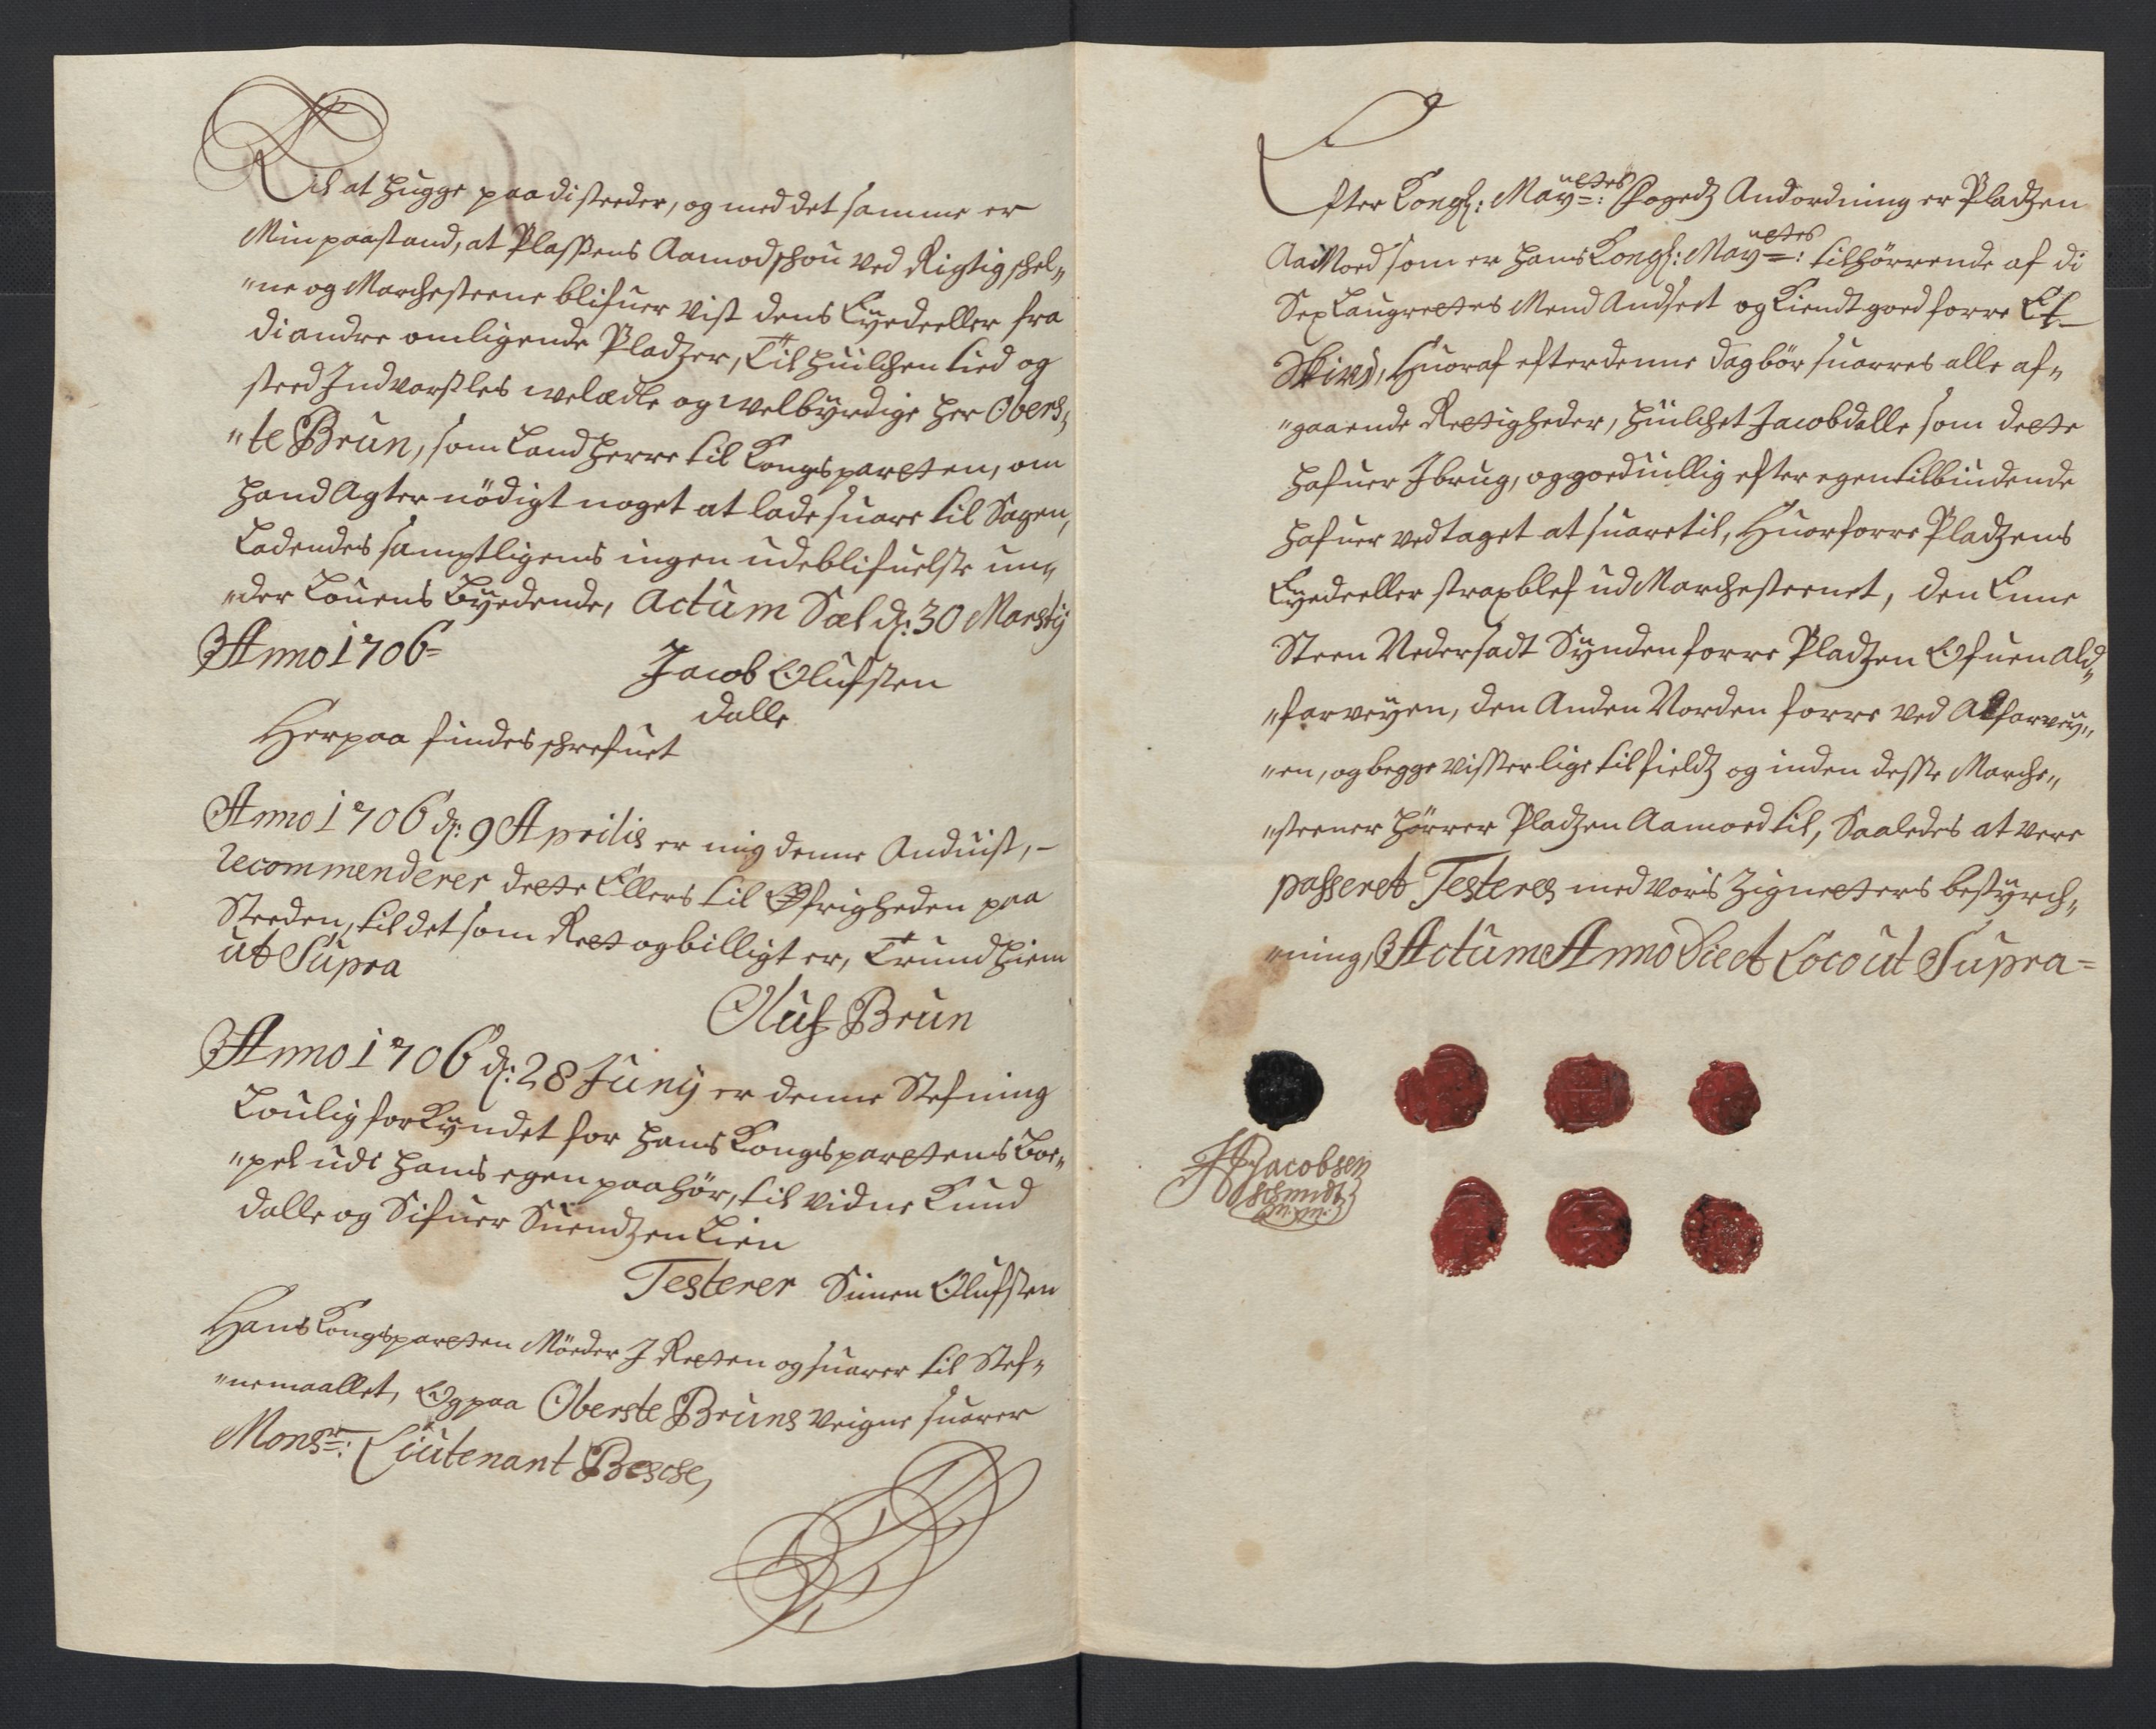 Til at hugge paa di steeder, og med det samme er
Min paastand, at Plassens Aamodschou ved Rigtig schel„
„ne og Marchesteene blifuer vist dens Eyedeeller fra
di andre omligende Pladzer, Til huilchen tied og
steed Indvarsles welædle og welbyrdige her Obers„
„te Brun, som Landherre til Kongsparten, om
hand Agter nødigt noget at lade suare til Sagen,
Ladendes samptligens ingen udeblifuelse un„
„der Louens Byedende, Actum Sæl d: 30 Marty
Anno 1706=
Jacob Olufsen
Dalle
Herpaa findes schrefuet
Anno 1706 d: 9 Aprilis er mig denne Anduist, –
recommenderer dette Ellers til Øfrigheden paa
Steeden, til det som Ret og billigt er, Trundhiem
ut Supra
Oluf Brun
Anno 1706 d: 28 Juny er denne Stefning
Loulig forkyndet for Hans Kongsparten
„pel udi hans egen paahør, til vidne Knud
Dalle og Sifuer Suendzen Lien
Testerer Simen Olufsen
Hans Kongsparten Møeder I Retten og suarer til Stef„
„nemaallet, Og paa Oberste Bruns Veigne suarer
Monsr: Liutenant Besche,
Efter Kongl: Mayttes: Fogedz Andordning er Pladzen
Aamoed som er hans Kongl: Mayttes: tilhørrende af di
Sex Laugrettes Mend Andseet og Kiendt goed forre Et
Skind, Huoraf efter denne dag bør suarres alle af„
„gaaende Rettigheder, huilchet Jacob Dalle som dette
hafuer I brug, og goeduillig efter egen tilbindende
hafuer vedtaget at suare til, Huorforre Pladzens
Eyedeeller strax blef ud Marchesteenet, den Eene
Steen Nedersadt Synden forre Pladzen Ofuen Ald„
„farveyen, den Anden Norden forre ved Alfarvey„
„en, og begge visser lige til fields og inden desse Marche„
„steener hører Pladzen Aamoed til, Saaledes at vere
passeret Testeres med voris Zigneters bestyrch„
„ning, Actum Anno Die et Loco ut Supra=
Jacobsen
Schmidt
m.pm.